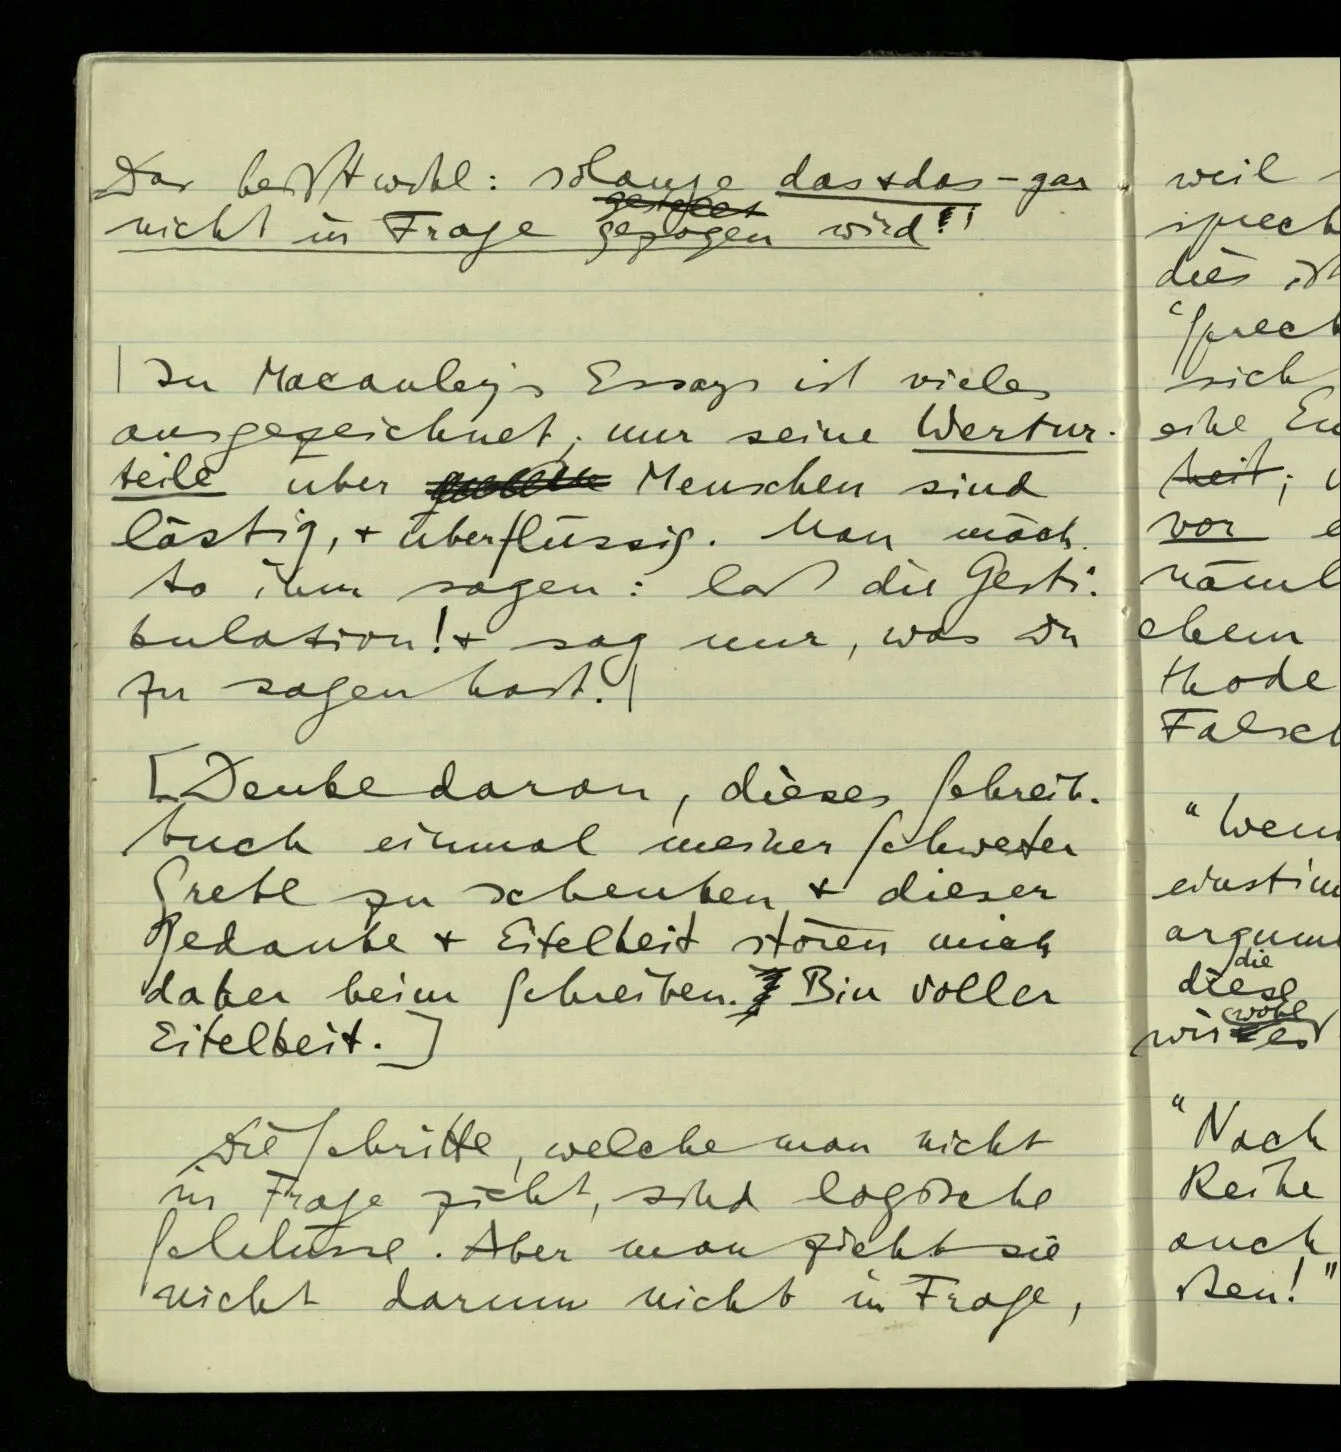 Das heißt wohl: solange das + das – gar
gestellt
nicht in Frage gezogen wird!!
| In Macauley's Essays ist vieles
ausgezeichnet; nur seine Wertur-
teile über Menschen sind
lästig, + überflüssig. Man möch-
te ihm sagen: laß die Gesti-
kulation! + sag nur, was Du
zu sagen hast. |
[Denke daran, dieses Schreib-
buch einmal meiner Schwester
Gretl zu schenken + dieser
Gedanke + Eitelkeit stören mich
daher beim Schreiben. Bin voller
Eitelkeit.]
Die Schritte, welche man nicht
in Frage zieht, sind logische
Schlüsse. Aber man zieht sie
nicht darum nicht in Frage,
weil
sprech
dies ist
"Sprech
sich
eine En
heit;
vor e
näml
chem
thode
Falsch
"Wenn
einstim
argum
die
diese
wohl
wir es
"Nach
Reihe
auch
ßen!"